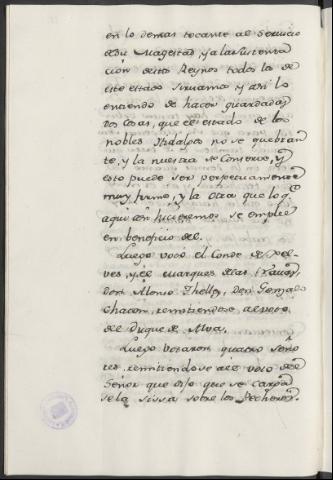 en lo demas tocante al servicio
de su Magestad, y a la sustenta
cion destos Reynos todos los de
este estado sirvamos y asi lo
entiendo de hacer guardadas
dos cosas, que el estado de los
nobles Hidalgos no se quebran
te, y la nuestra se conserve, y
esto puede ser perpetuamente
muy firme, y la otra que lo q.e
aqui con hicieremos se emplee
en beneficio del.
Luego votó el Conde de
ves, y el Marques de las Navas,
Don Alonso Thellez, Don Gonzalo
Chacon, remitiendose al voto
del Duque de Alva.
Luego votaron quatro Seño
res, remitiendose al voto del
Señor que dijo que se carga
se la sissa sobre los Pecheros.